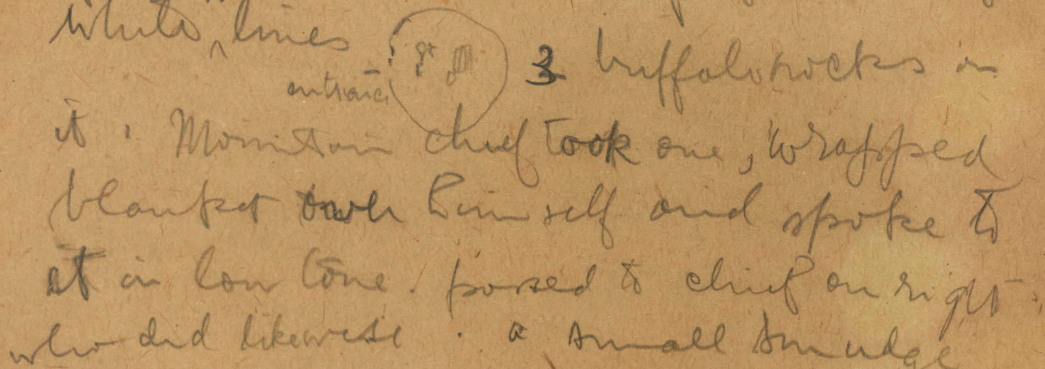 white lines
entrance
3 buffalo rocks in
it. Mountain chief took one, wrapped
blanket over himself and spoke to
it in low tone. passed to chief on right.
who did likewise. a small smudge